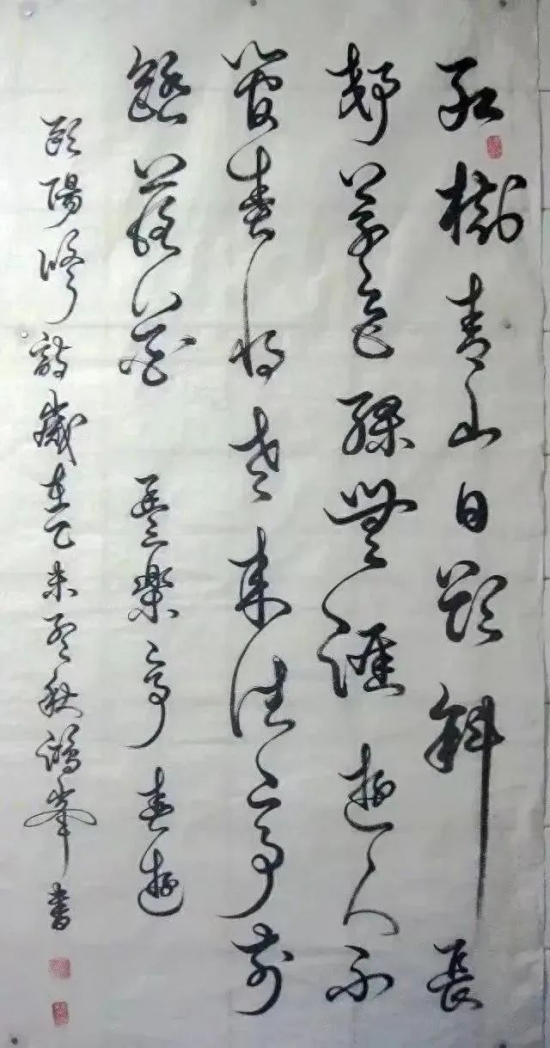 紅樹青山日欲斜長
郊草色綠無涯遊人不
管春將老來往亭前
踏落花 豐樂亭春遊
歐陽修詩歲在乙未孟秋鴻峯書